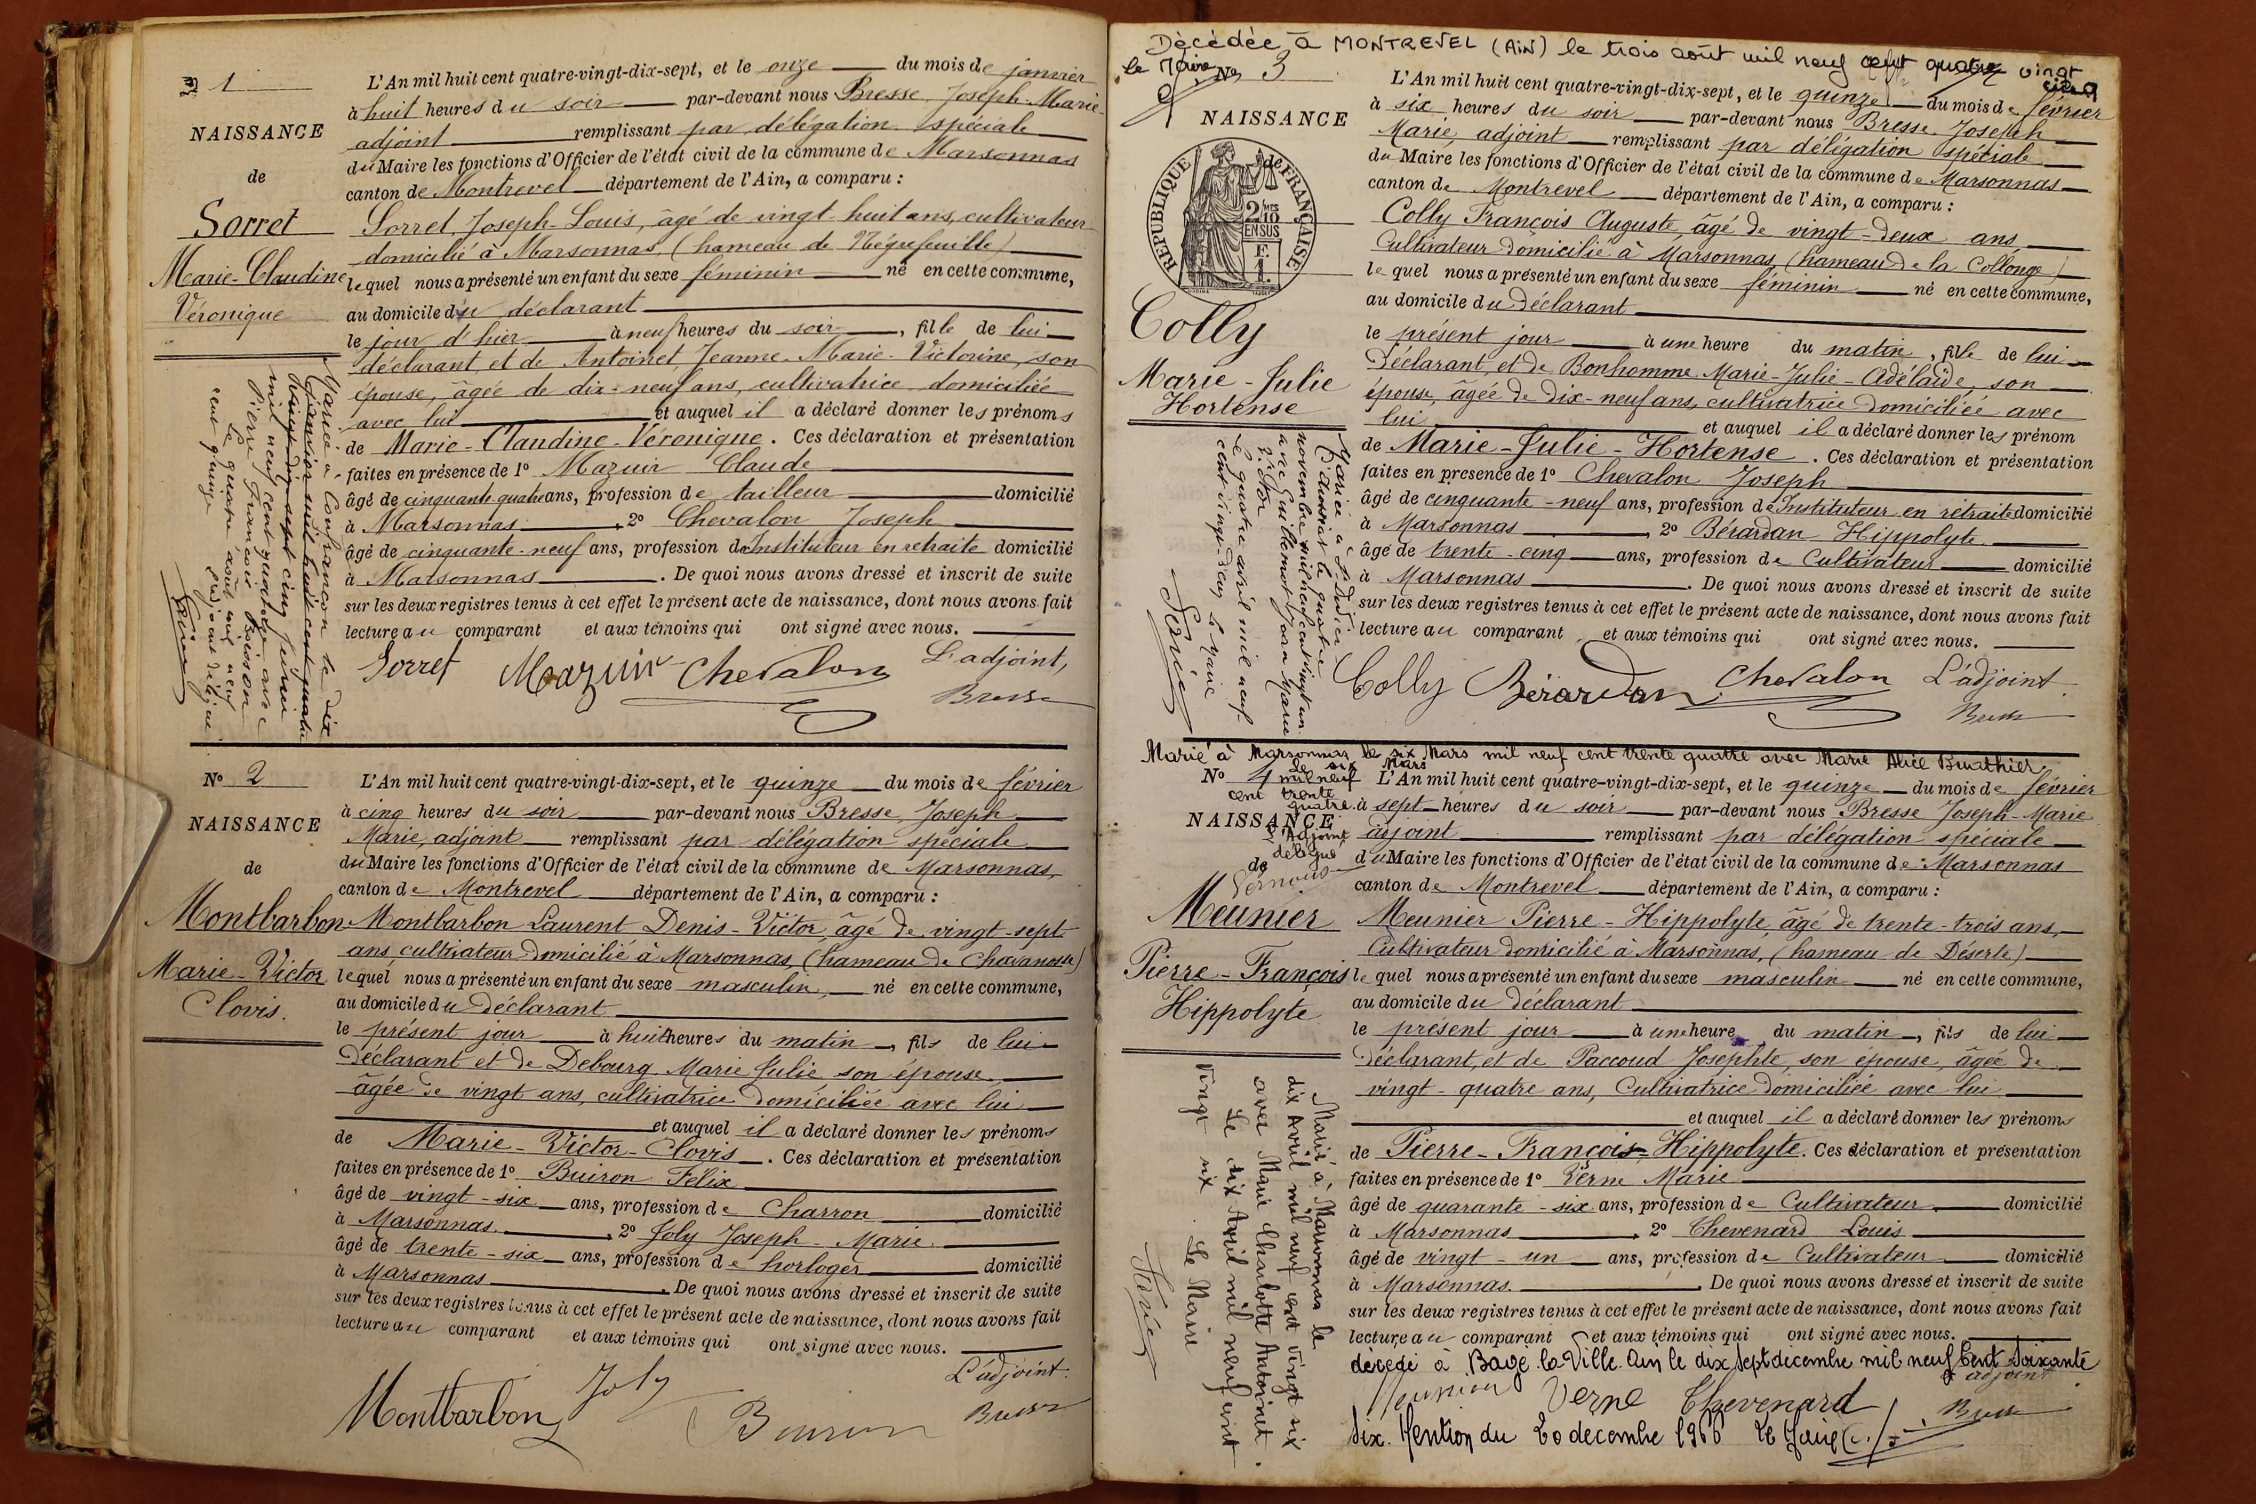 1
NAISSANCE
de
Sorret
Marie-Claudine
Véronique
L'An mil huit cent quatre-vingt-dix-sept, et le onze du mois de janvier
à huit heures du soir par-devant nous Bresse Joseph-Marie
adjoint remplissant par délégation spéciale
du Maire les fonctions d'Officier de l'état civil de la commune de Marsonnas
canton de Montrevel département de l'Ain, a comparu :
Sorret Joseph-Louis, âgé de vingt-huit ans, cultivateur
domicilié à Marsonnas, (hameau de Négrefeuille)
lequel nous a présenté un enfant du sexe féminin né en cette commune,
au domicile du déclarant
le jour d'hier à neuf heures du soir, fille de lui
déclarant, et de Antoinet Jeanne-Marie-Victorine, son
épouse, âgée de dix-neuf ans, cultivatrice domiciliée
avec lui et auquel il a déclaré donner les prénoms
de Marie-Claudine-Véronique. Ces déclaration et présentation
faites en présence de 1° Mazuir Claude
âgé de cinquante-quatre ans, profession de tailleur domicilié
à Marsonnas, 2° Chevalon Joseph
âgé de cinquante-neuf ans, profession d'Instituteur en retraite domicilié
à Marsonnas. De quoi nous avons dressé et inscrit de suite
sur les deux registres tenus à cet effet le présent acte de naissance, dont nous avons fait
lecture au comparant et aux témoins qui ont signé avec nous.
Sorret Mazuir Chevalon L'adjoint,
Bresse
Mariée à Confrançon le dix
janvier mil huit cent quatre
vingt dix sept cinq juin
mil neuf cent quatorze avec
Pierre François
Le quatre août mil neuf
cent quinze
N° 2
NAISSANCE
de
Montbarbon
Marie-Victor
Clovis.
L'An mil huit cent quatre-vingt-dix-sept, et le quinze du mois de février
à cinq heures du soir par-devant nous Bresse Joseph
Marie, adjoint remplissant par délégation spéciale
du Maire les fonctions d'Officier de l'état civil de la commune de Marsonnas,
canton de Montrevel département de l'Ain, a comparu :
Montbarbon Laurent Denis-Victor, âgé de vingt-sept
ans, cultivateur domicilié à Marsonnas, (hameau de Chavanosse)
lequel nous a présenté un enfant du sexe masculin, né en cette commune,
au domicile du déclarant
le présent jour à huit heures du matin, fils de lui
déclarant et de Debourg Marie Julie son épouse
âgée de vingt ans, cultivatrice domiciliée avec lui
et auquel il a déclaré donner les prénoms
de Marie-Victor-Clovis. Ces déclaration et présentation
faites en présence de 1° Buiron Félix
âgé de vingt-six ans, profession de Charron domicilié
à Marsonnas, 2° Joly Joseph-Marie
âgé de trente-six ans, profession de horloger domicilié
à Marsonnas. De quoi nous avons dressé et inscrit de suite
sur les deux registres tenus à cet effet le présent acte de naissance, dont nous avons fait
lecture au comparant et aux témoins qui ont signé avec nous.
L'adjoint.
Montbarbon Joly Buiron Bresse
Décédée à MONTREVEL (AIN) le trois août mil neuf cent quatre vingt
cinq
le Maire
N° 3
NAISSANCE
de
REPUBLIQUE FRANÇAISE
2/10 EN SUS
F. 1.
Colly
Marie-Julie
Hortense
L'An mil huit cent quatre-vingt-dix-sept, et le quinze du mois de février
à six heures du soir par-devant nous Bresse Joseph
Marie adjoint remplissant par délégation spéciale
du Maire les fonctions d'Officier de l'état civil de la commune de Marsonnas
canton de Montrevel département de l'Ain, a comparu :
Colly François Auguste, âgé de vingt-deux ans,
cultivateur domicilié à Marsonnas, (hameau de la Collonge)
lequel nous a présenté un enfant du sexe féminin né en cette commune,
au domicile du déclarant
le présent jour à une heure du matin, fille de lui
déclarant, et de Bonhomme Marie-Julie-Adélaïde, son
épouse, âgée de dix-neuf ans, cultivatrice domiciliée avec
lui et auquel il a déclaré donner les prénom
de Marie-Julie-Hortense. Ces déclaration et présentation
faites en présence de 1° Chevalon Joseph
âgé de cinquante-neuf ans, profession d'Instituteur en retraite domicilié
à Marsonnas, 2° Bérardan Hippolyte
âgé de trente-cinq ans, profession de Cultivateur domicilié
à Marsonnas. De quoi nous avons dressé et inscrit de suite
sur les deux registres tenus à cet effet le présent acte de naissance, dont nous avons fait
lecture au comparant et aux témoins qui ont signé avec nous.
Colly Bérardan Chevalon L'adjoint.
Bresse
Mariée à St Didier
d'Aussiat le quatre
novembre mil neuf cent vingt un
avec Guillemot Jean Marie
Victor
Le quatre avril mil neuf
cent vingt-deux Le Maire
Marié à Marsonnas le six Mars mil neuf cent trente quatre avec Marie Alice Burthier
Le six Mars
mil neuf
cent trente
quatre
L'Adjoint
délégué
N° 4
NAISSANCE
de
Meunier
Pierre-François
Hippolyte
L'An mil huit cent quatre-vingt-dix-sept, et le quinze du mois de février
à sept heures du soir par-devant nous Bresse Joseph-Marie
adjoint remplissant par délégation spéciale
du Maire les fonctions d'Officier de l'état civil de la commune de Marsonnas
canton de Montrevel département de l'Ain, a comparu :
Meunier Pierre-Hippolyte, âgé de trente-trois ans,
Cultivateur domicilié à Marsonnas, (hameau de Déserte)
lequel nous a présenté un enfant du sexe masculin né en cette commune,
au domicile du déclarant
le présent jour à une heure du matin, fils de lui
déclarant, et de Paccoud Josephte, son épouse, âgée de
vingt-quatre ans, Cultivatrice domiciliée avec lui
et auquel il a déclaré donner les prénoms
de Pierre-François-Hippolyte. Ces déclaration et présentation
faites en présence de 1° Verne Marie
âgé de quarante-six ans, profession de Cultivateur domicilié
à Marsonnas, 2° Chevenard Louis
âgé de vingt-un ans, profession de Cultivateur domicilié
à Marsonnas. De quoi nous avons dressé et inscrit de suite
sur les deux registres tenus à cet effet le présent acte de naissance, dont nous avons fait
lecture au comparant et aux témoins qui ont signé avec nous.
décédé à Bagé-la-Ville Ain le dix sept décembre mil neuf cent soixante
L'adjoint
Meunier Verne Chevenard Bresse
six. Mention du 20 décembre 1966 le Maire
Marié à Marsonnas le
dix Avril mil neuf cent vingt six
avec Marie Charlotte Antoinet.
Le dix Avril mil neuf cent
vingt six. Le Maire